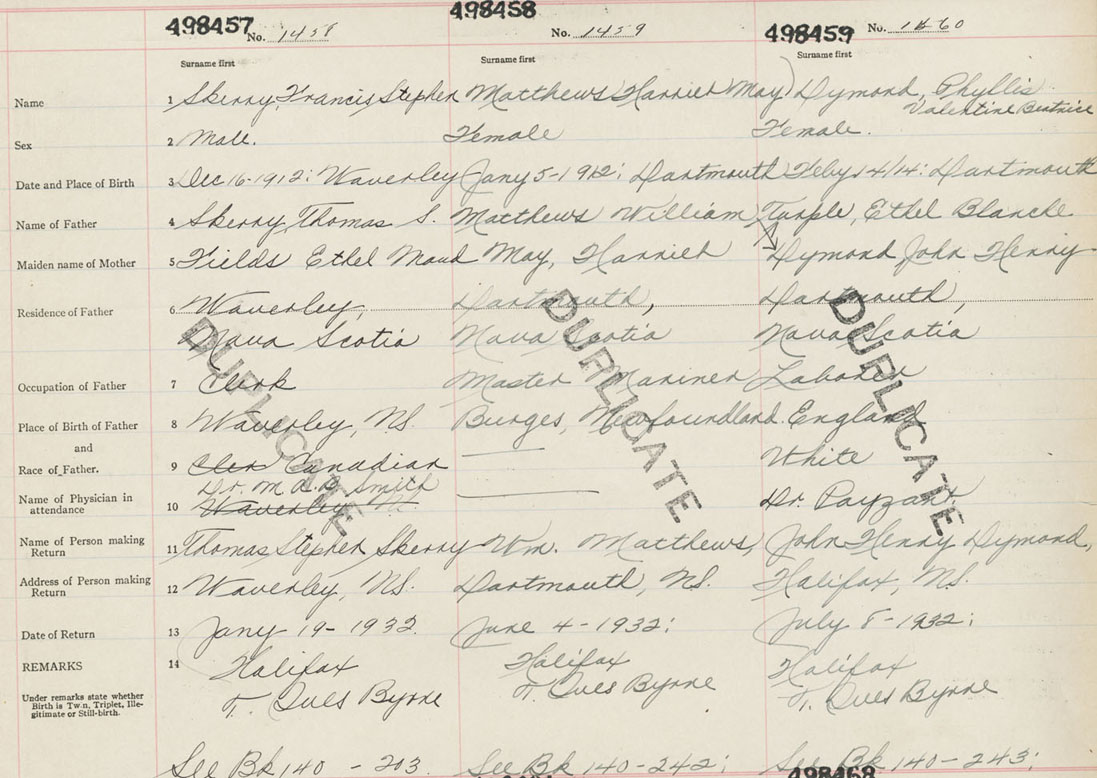 498457 498458 498459
No. 1458 No. 1459 No. 1460
Surname first Surname first Surname first
Name 1 Skerry, Francis Stephen Matthews Harriet May Dymond, Phyllis
Valentine Beatrice
Sex 2 Male. Female Female.
Date and Place of Birth 3 Dec 16-1912: Waverley Jany 5-1912: Dartmouth Feby 14/14: Dartmouth
Name of Father 4 Skerry Thomas S. Matthews William Turple, Ethel Blanche
Maiden name of Mother 5 Fields Ethel Maud May, Harriet Dymond John Henry
Residence of Father 6 Waverley, Dartmouth, Dartmouth,
Nova Scotia Nova Scotia Nova Scotia
Occupation of Father 7 Clerk Master Mariner Laborer
Place of Birth of Father 8 Waverley, N.S. Burges, Newfoundland. England
and
Race of Father. 9 Cler Canadian White
Dr. M. Smith
Name of Physician in
attendance 10 Waverley Dr. Payzant
Name of Person making
Return 11 Thomas Stephen Skerry Wm. Matthews, John Henry Dymond,
Address of Person making
Return 12 Waverley, N.S. Dartmouth, N.S. Halifax, N.S.
Date of Return 13 Jany 19-1932. June 4-1932: July 8-1932:
REMARKS 14 Halifax Halifax Halifax
Under remarks state whether
Birth is Twin, Triplet, Ille-
gitimate or Still-birth.
T. Ives Byrne T. Ives Byrne T. Ives Byrne
See Bk 140 - 203. See Bk 140-242; See Bk 140-243:
498468
DUPLICATE
DUPLICATE
DUPLICATE